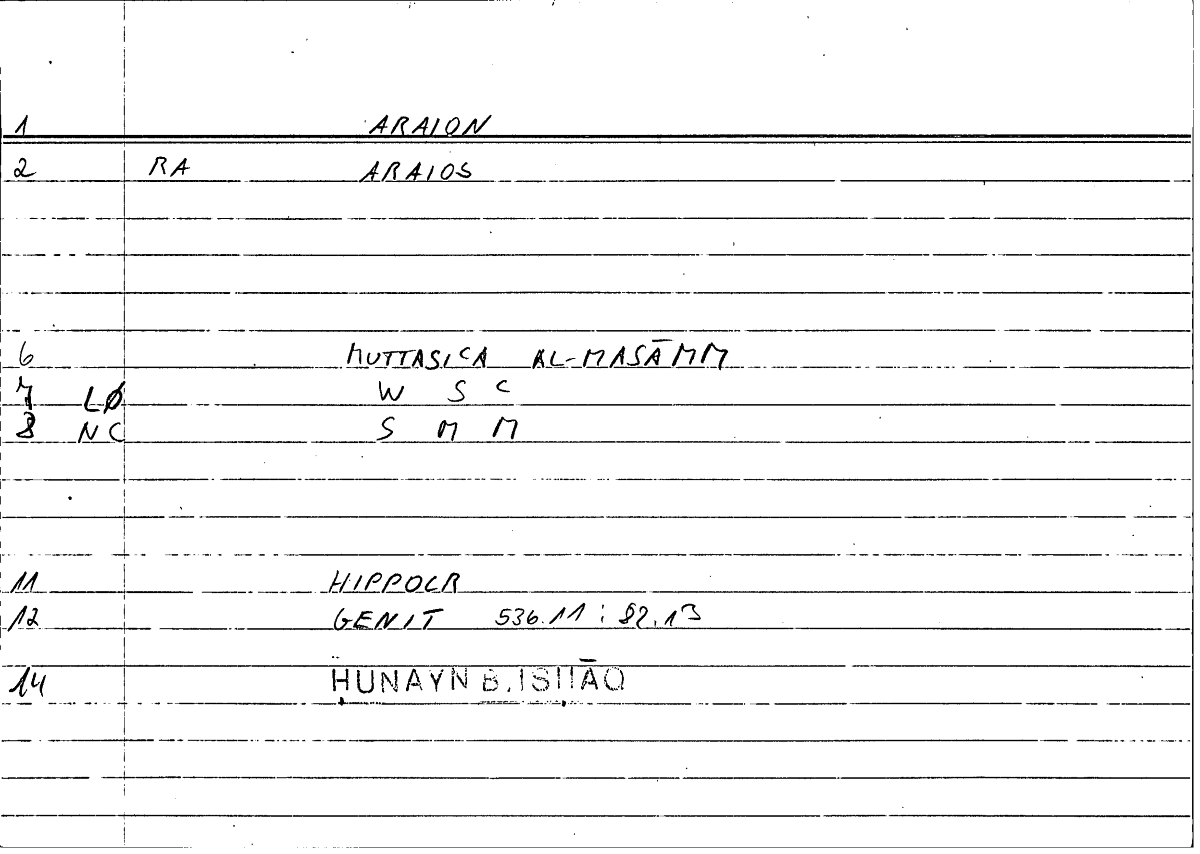 1 ARAION
2 RA ARAIOS
6 MUTTASICA AL-MASĀMM
7 LØ W S C
8 NC S M M
11 HIPPOCR
12 GENIT 536.11 : 82.13
14 ḤUNAYN B. ISḤĀQ